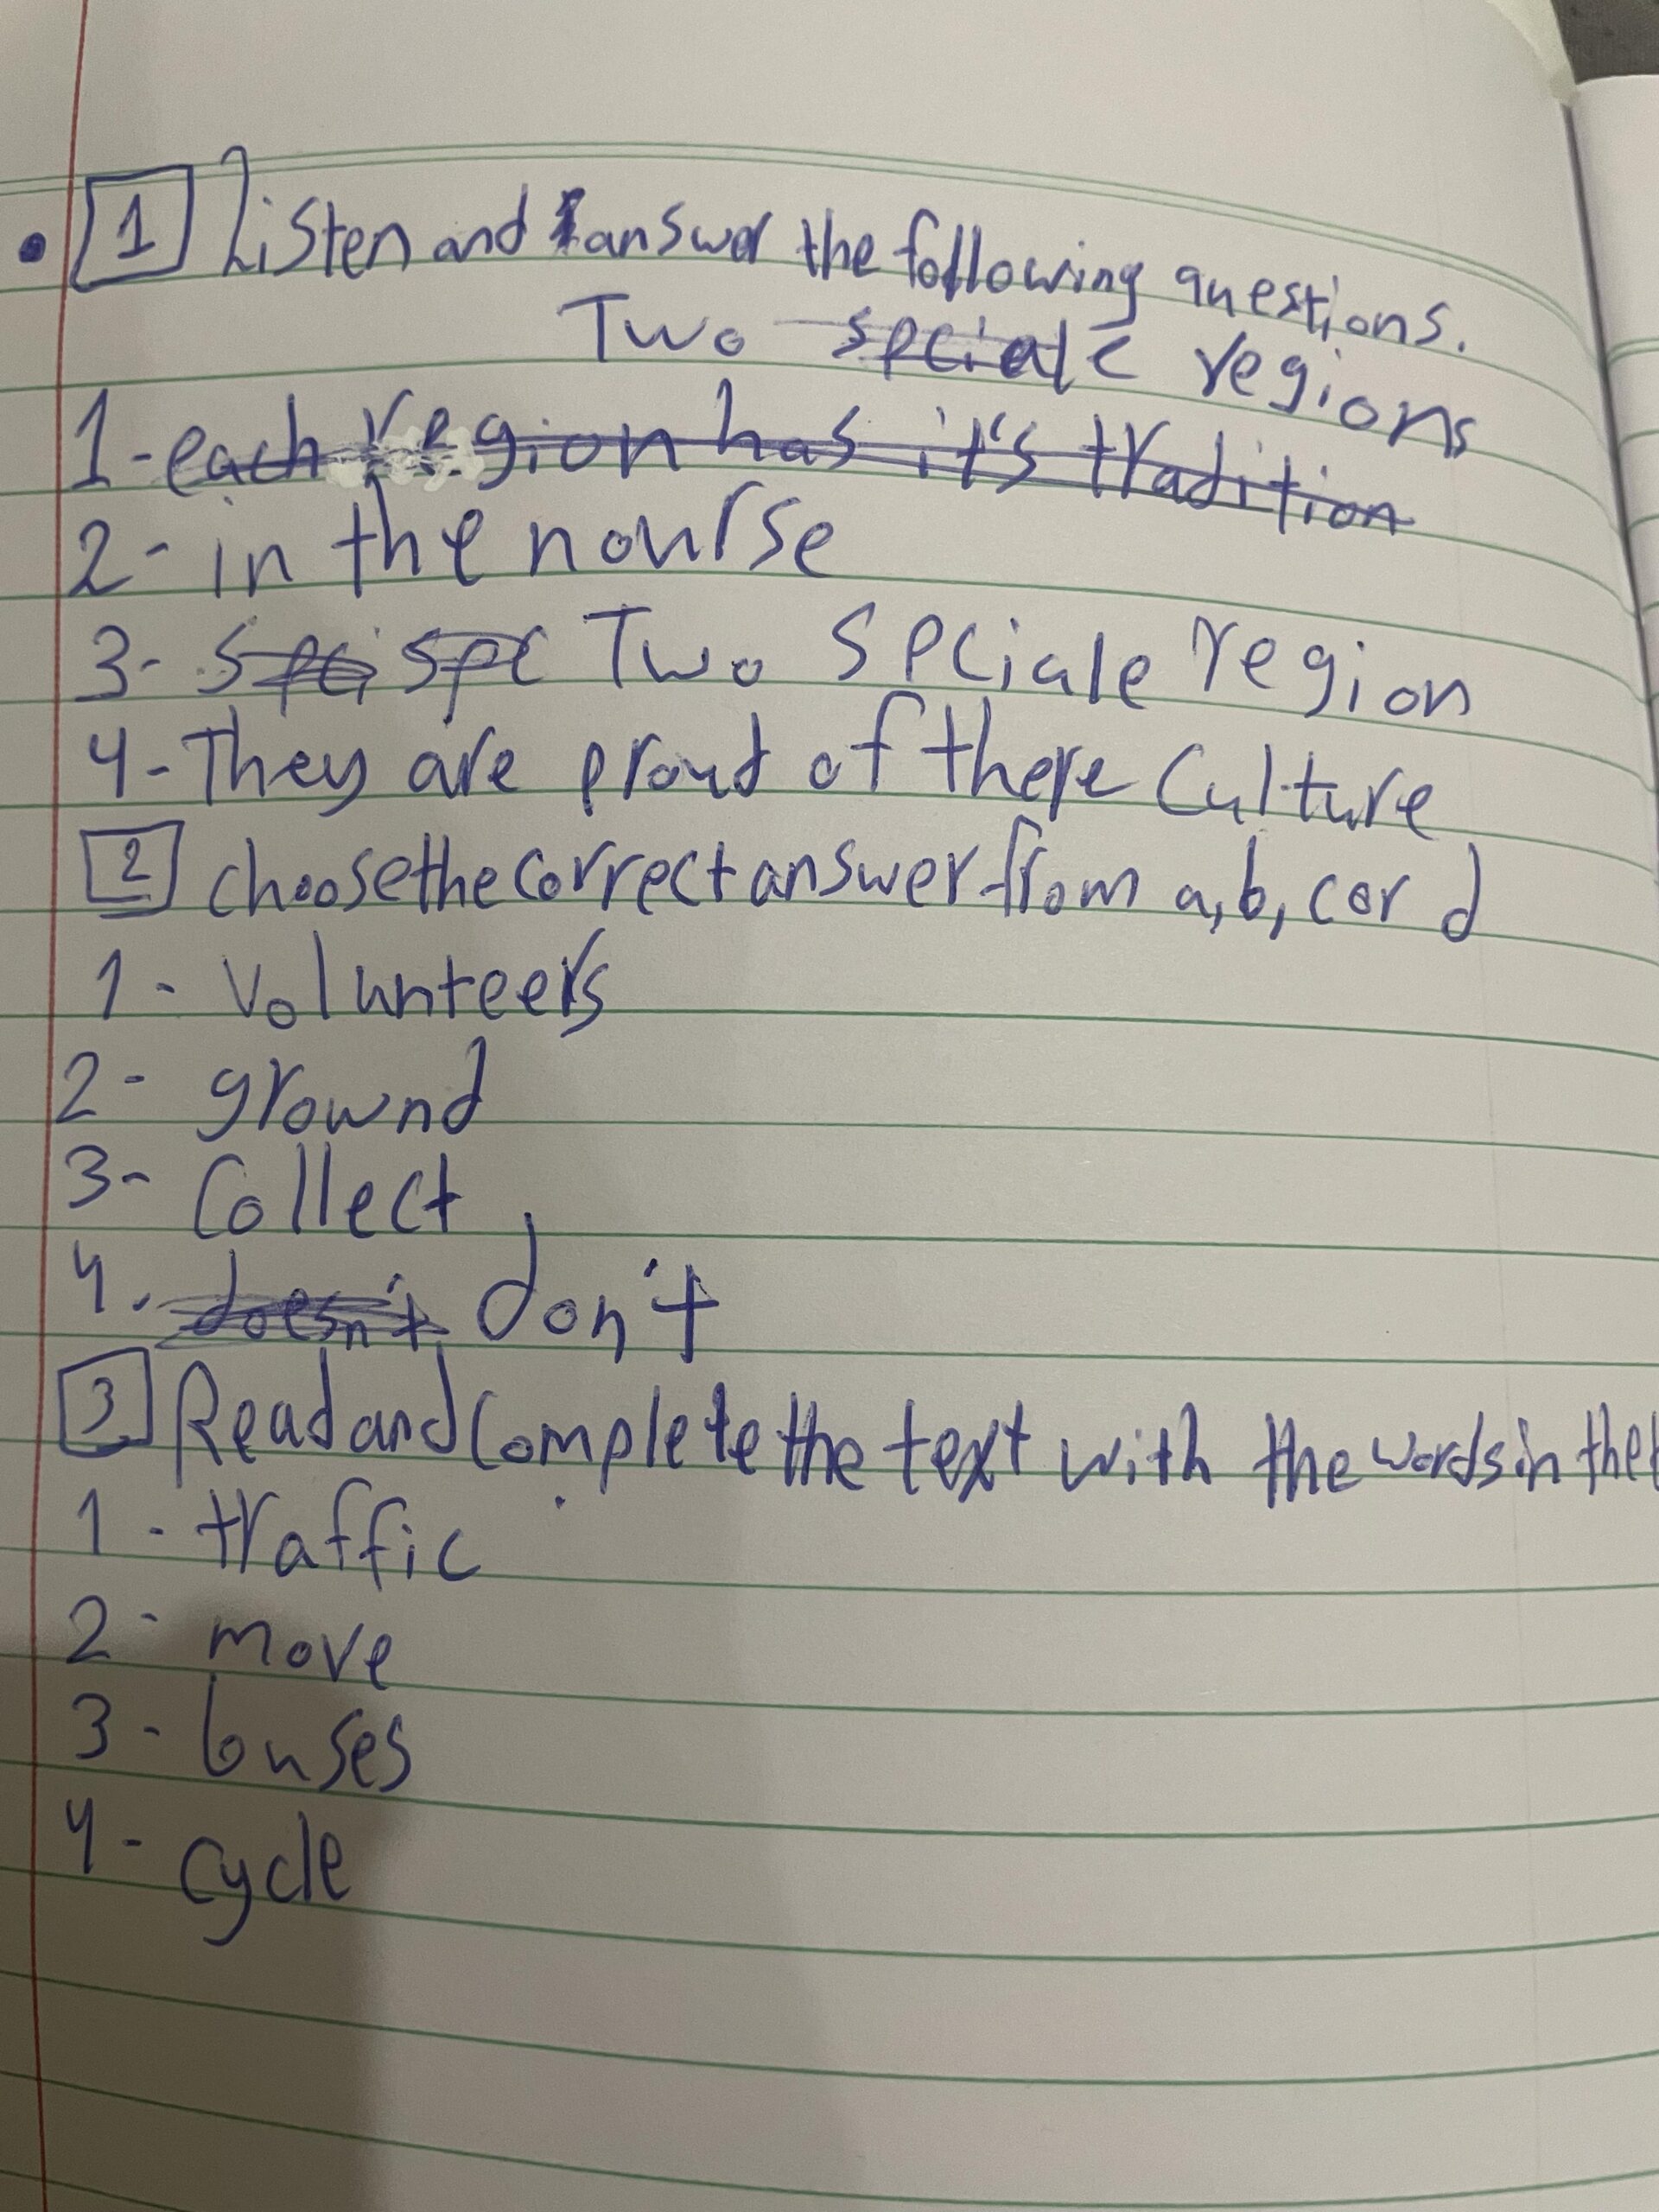 1 Listen and answer the following questions.
Two speciale regions
1- each region has it's tradition
2- in the nourse
3- spci spe Two speciale region
4- They are proud of there culture
2 choose the correct answer from a, b, c or d
1- Volunteers
2- grownd
3- Collect
4. doesn't don't
3 Read and complete the text with the words in the
1- traffic
2- move
3- buses
4- cycle